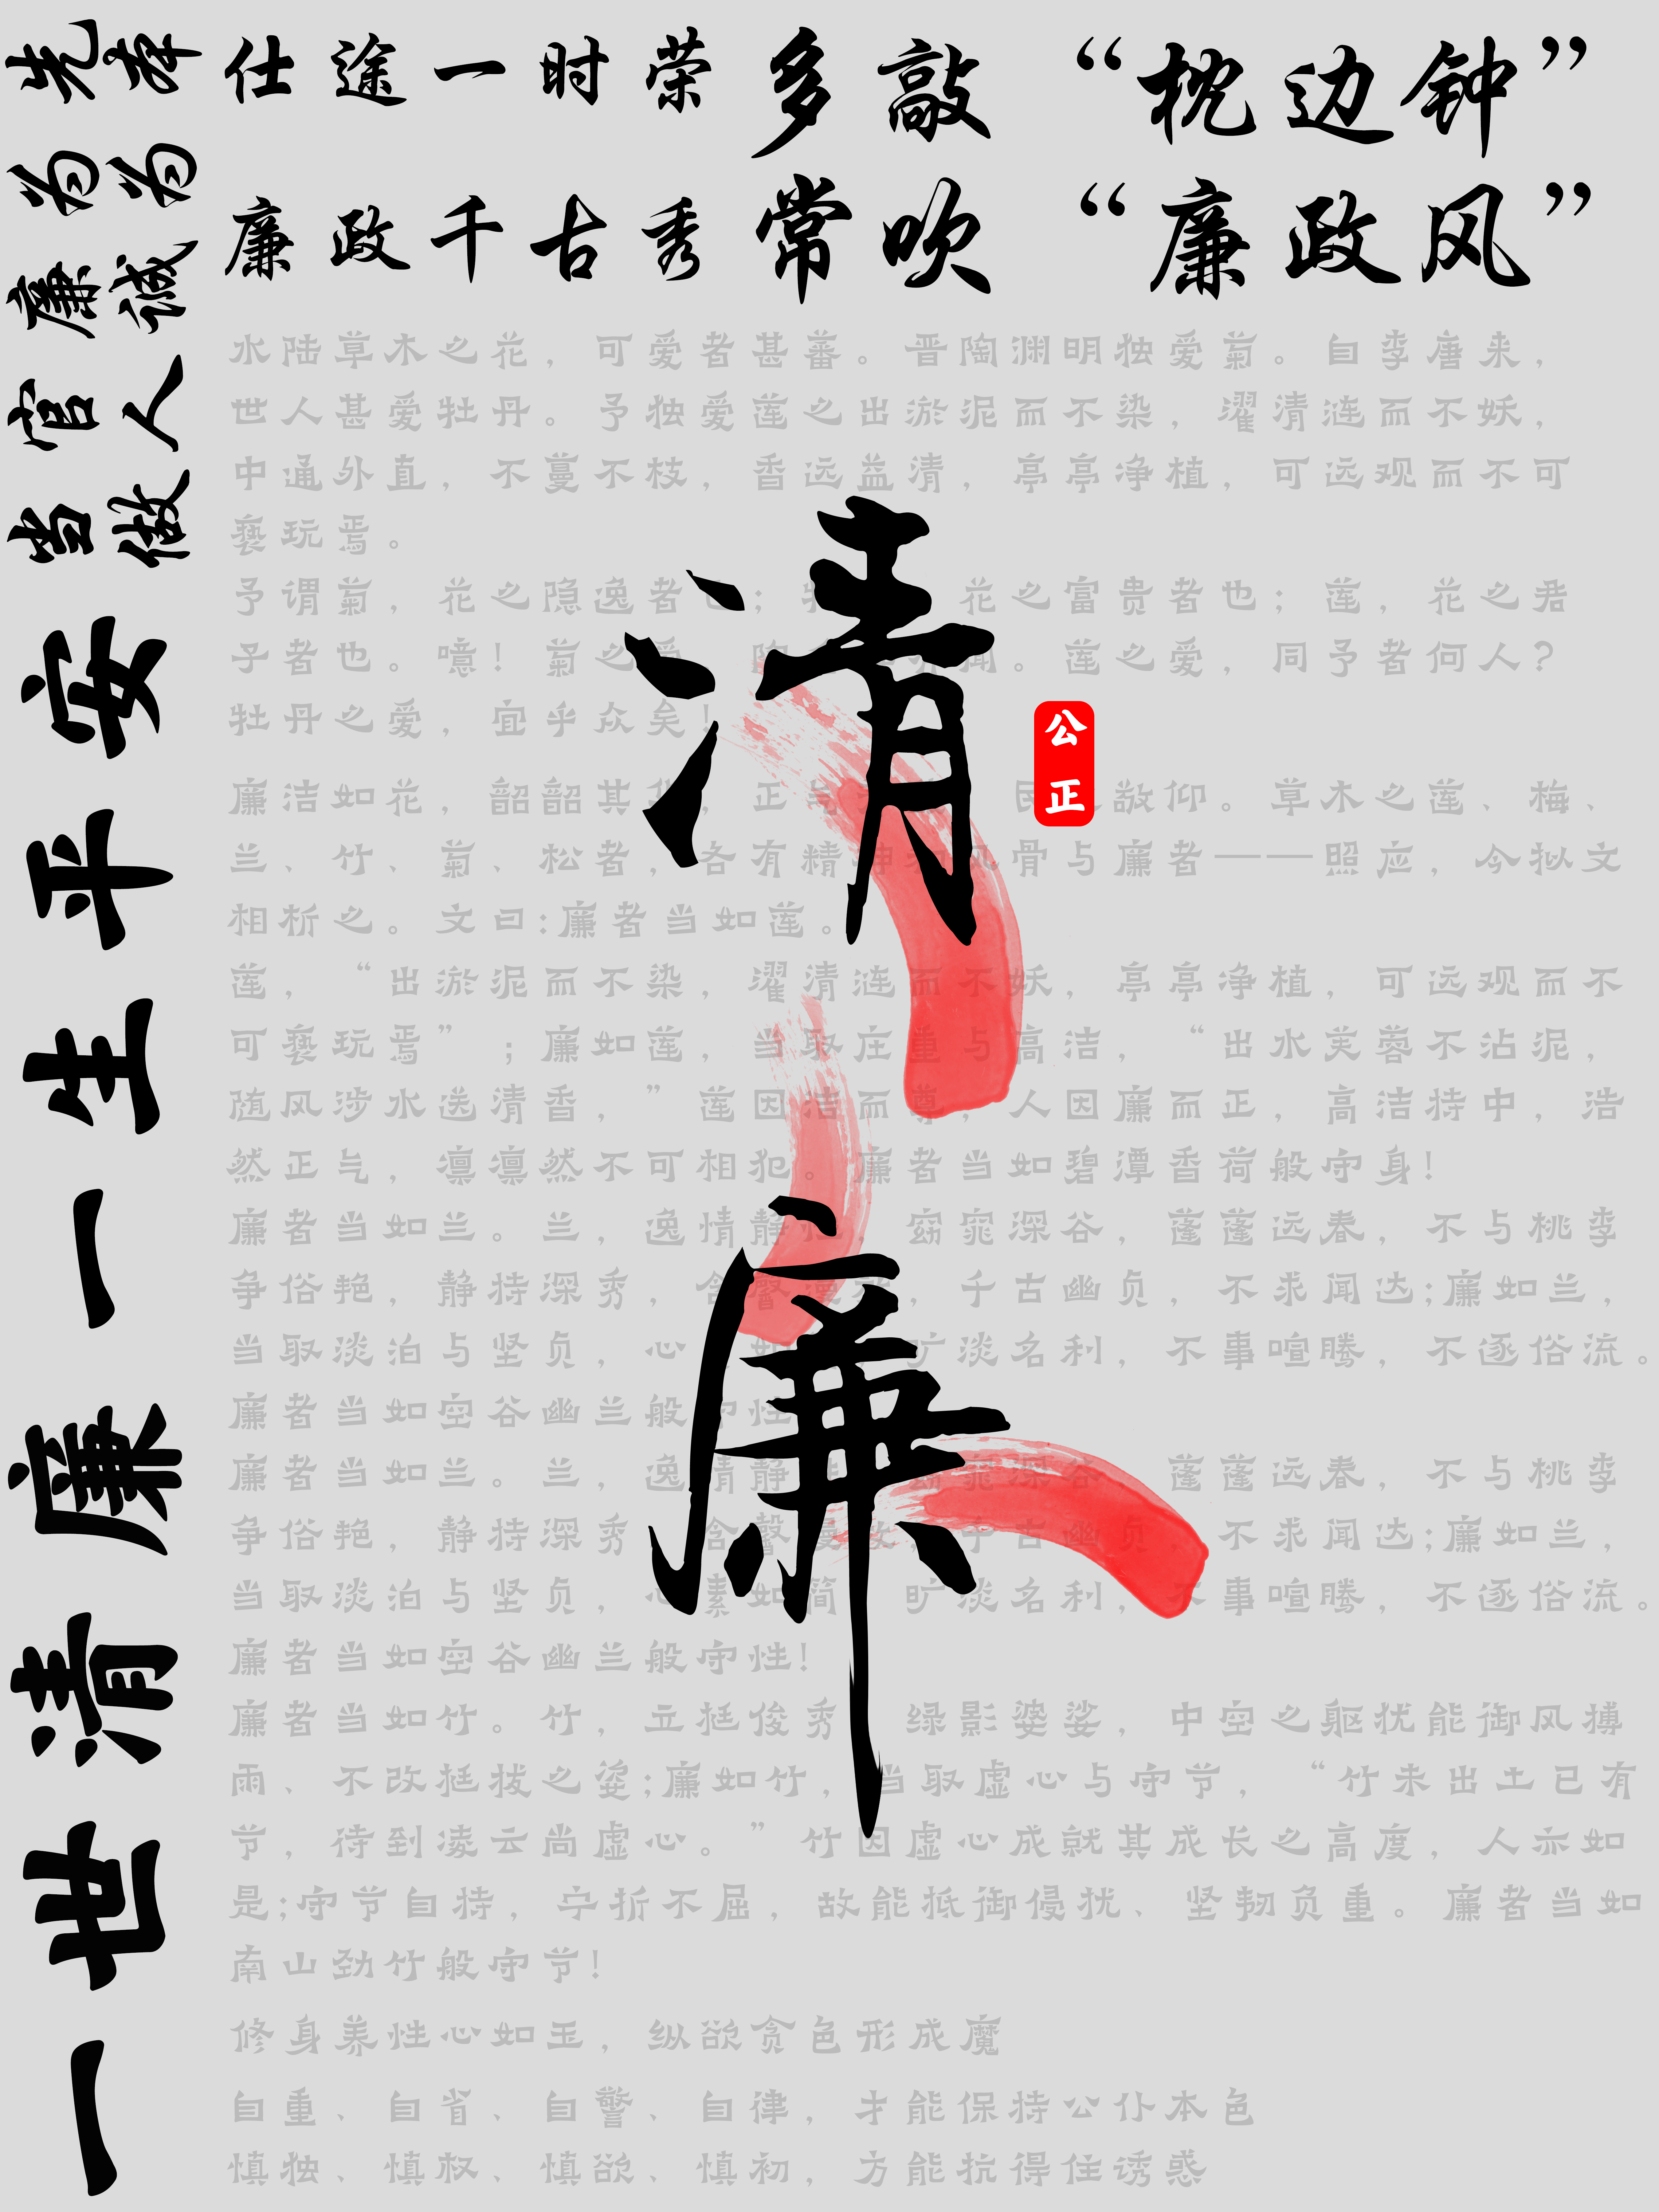 仕途一时荣
廉政千古秀
多敲“枕边钟”
常吹“廉政风”
当官廉为先
做人诚为
一世清廉一生平安
水陆草木之花，可爱者甚蕃。晋陶渊明独爱菊。自李唐来，
世人甚爱牡丹。予独爱莲之出淤泥而不染，濯清涟而不妖，
中通外直，不蔓不枝，香远益清，亭亭净植，可远观而不可
亵玩焉。
予谓菊，花之隐逸者也；牡 花之富贵者也；莲，花之君
子者也。噫！菊之爱 陶 闻。莲之爱，同予者何人？
牡丹之爱，宜乎众矣！
廉洁如花，韶韶其华，正 民 敬仰。草木之莲、梅、
兰、竹、菊、松者，各有精神和风骨与廉者——照应，今拟文
相析之。文曰:廉者当如莲。
莲，“出淤泥而不染，濯清涟而不妖，亭亭净植，可远观而不
可亵玩焉”；廉如莲，当取庄重与高洁，“出水芙蓉不沾泥，
随风涉水送清香，”莲因洁而尊，人因廉而正，高洁持中，浩
然正气，凛凛然不可相犯。廉者当如碧潭香荷般守身！
廉者当如兰。兰，逸情静 窈窕深谷，蓬蓬远春，不与桃李
争俗艳，静持深秀，含馨 千古幽贞，不求闻达;廉如兰，
当取淡泊与坚贞，心 如 旷淡名利，不事喧腾，不逐俗流。
廉者当如空谷幽兰般守性
廉者当如兰。兰，逸情静 窈窕深谷，蓬蓬远春，不与桃李
争俗艳，静持深秀 含馨 千古幽贞，不求闻达;廉如兰，
当取淡泊与坚贞，心素如简 旷淡名利，不事喧腾，不逐俗流。
廉者当如空谷幽兰般守性！
廉者当如竹。竹，立挺俊秀 绿影婆娑，中空之躯犹能御风搏
雨、不改挺拔之姿;廉如竹，当取虚心与守节，“竹未出土已有
节，待到凌云尚虚心。”竹因虚心成就其成长之高度，人亦如
是;守节自持，宁折不屈，故能抵御侵扰、坚韧负重。廉者当如
南山劲竹般守节！
修身养性心如玉，纵欲贪色形成魔
自重、自省、自警、自律，才能保持公仆本色
慎独、慎权、慎欲、慎初，方能抗得住诱惑
清
廉
公正